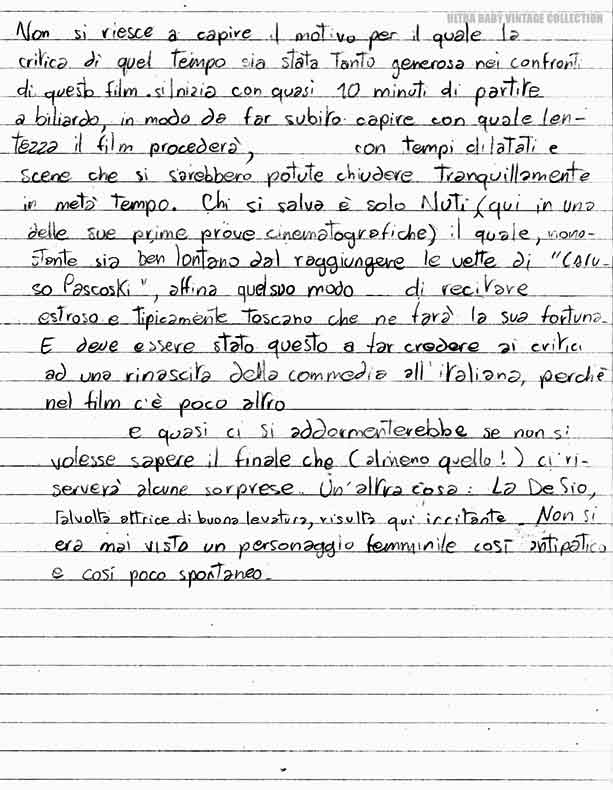 ULTRA BABY VINTAGE COLLECTION
Non si riesce a capire il motivo per il quale la
critica di quel tempo sia stata tanto generosa nei confronti
di questo film. Si inizia con quasi 10 minuti di partite
a biliardo, in modo da far subito capire con quale len-
tezza il film procederà, con tempi dilatati e
scene che si sarebbero potute chiudere tranquillamente
in metà tempo. Chi si salva è solo Nuti (qui in una
delle sue prime prove cinematografiche) il quale, nono-
stante sia ben lontano dal raggiungere le vette di "Caru-
so Pascoski", affina quel suo modo di recitare
estroso e tipicamente toscano che ne farà la sua fortuna.
E deve essere stato questo a far credere ai critici
ad una rinascita della commedia all'italiana, perché
nel film c'è poco altro
e quasi ci si addormenterebbe se non si
volesse sapere il finale che (almeno quello!) ci ri-
serverà alcune sorprese. Un'altra cosa: La De Sio,
talvolta attrice di buona levatura, risulta qui irritante. Non si
era mai visto un personaggio femminile così antipatico
e così poco spontaneo.